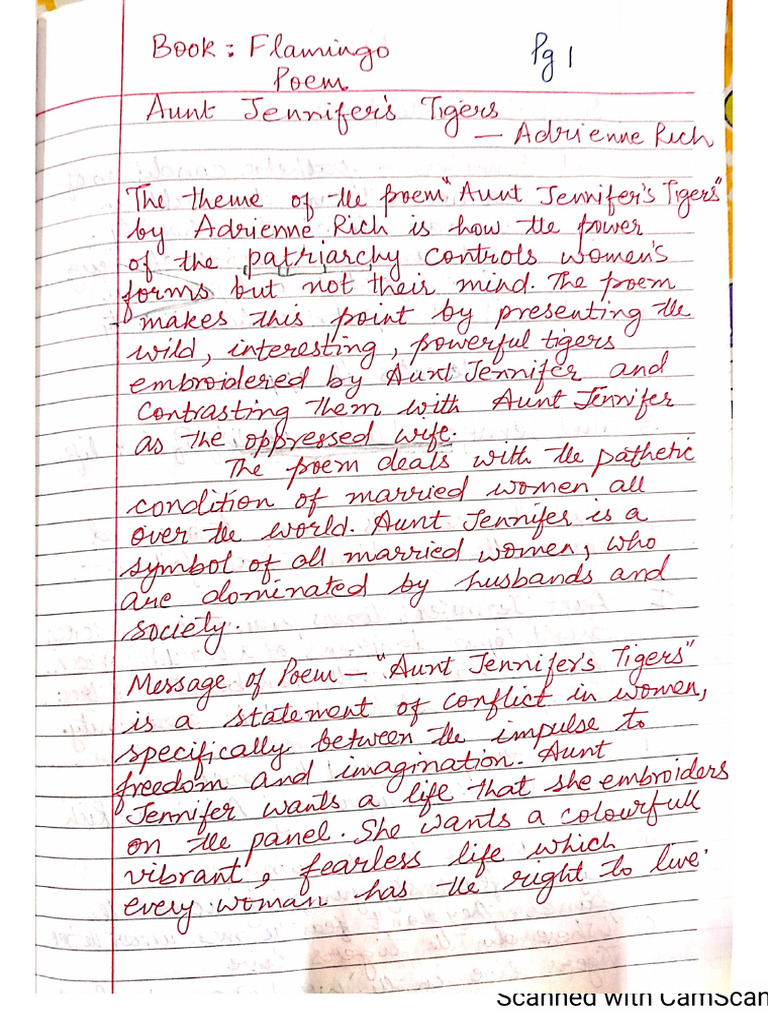 Book: Flamingo
Pg 1
Poem
Aunt Jennifer's Tigers
— Adrienne Rich
The theme of the poem "Aunt Jennifer's Tigers"
by Adrienne Rich is how the power
of the patriarchy controls women's
forms but not their mind. The poem
makes this point by presenting the
wild, interesting, powerful tigers
embroidered by Aunt Jennifer and
contrasting them with Aunt Jennifer
as the oppressed wife.
The poem deals with the pathetic
condition of married women all
over the world. Aunt Jennifer is a
symbol of all married women, who
are dominated by husbands and
society.
Message of Poem — "Aunt Jennifer's Tigers"
is a statement of conflict in women,
specifically between the impulse to
freedom and imagination. Aunt
Jennifer wants a life that she embroiders
on the panel. She wants a colourfull
vibrant, fearless life which
every woman has the right to live.
Scanned with CamScan